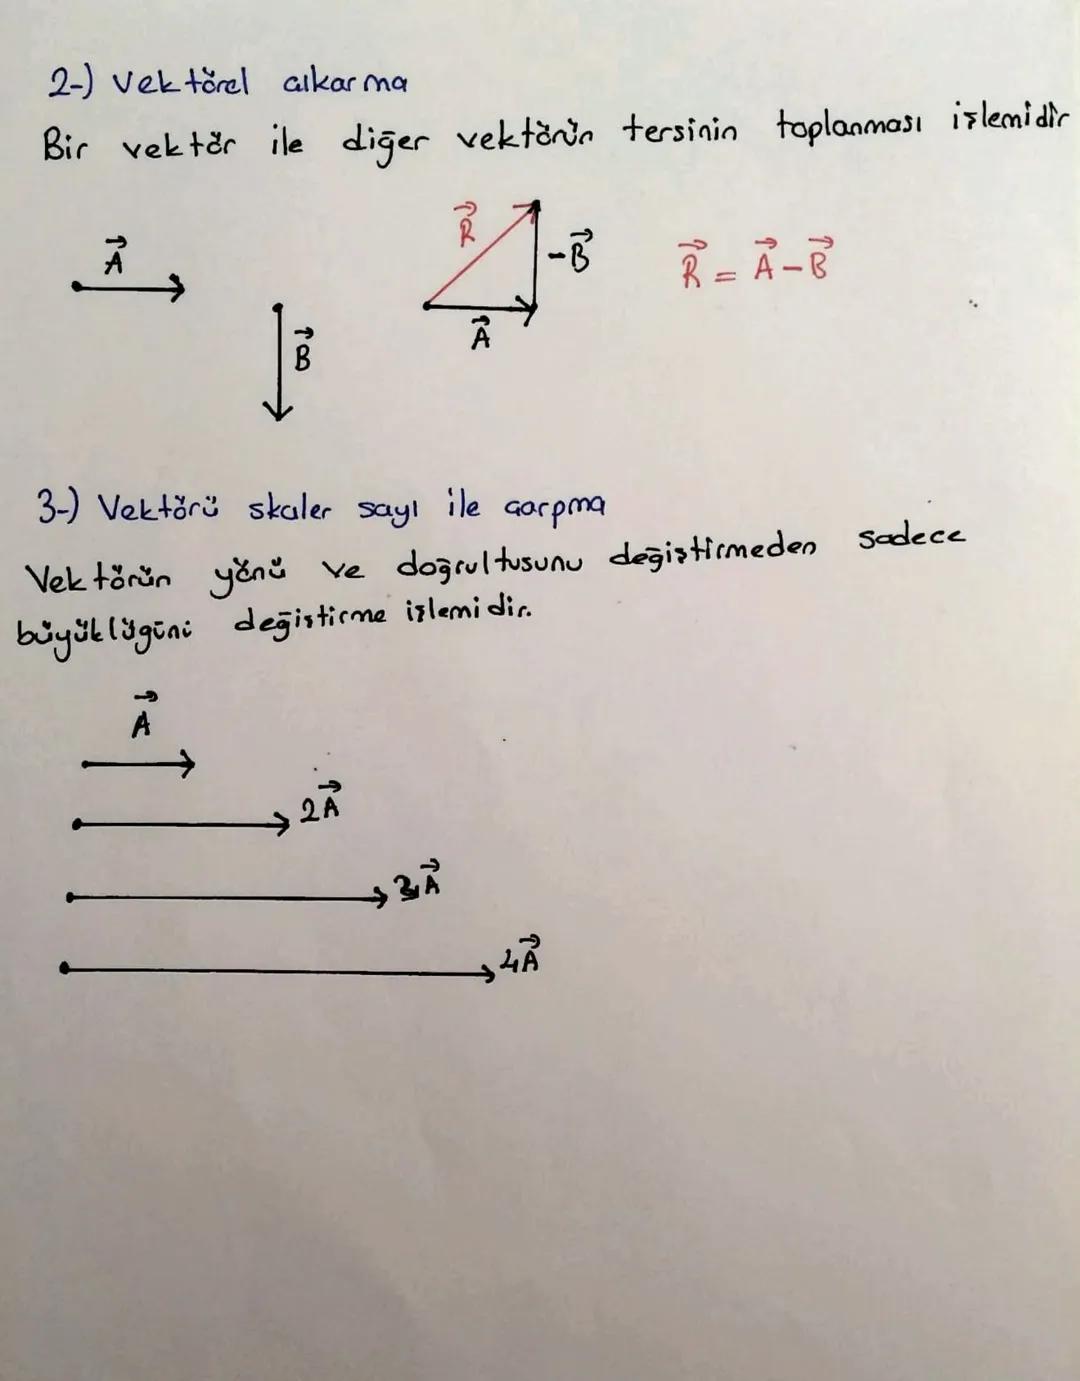 2-) Vektörel çıkarma
Bir vektör ile diğer vektörün tersinin toplanması işlemidir
A⃗
B⃗
R⃗
-B⃗
A⃗
R⃗ = A⃗ - B⃗
3-) Vektörü skaler sayı ile çarpma
Vektörün yönü ve doğrultusunu değiştirmeden sadece
büyüklüğünü değiştirme işlemidir.
A⃗
2A⃗
3A⃗
4A⃗